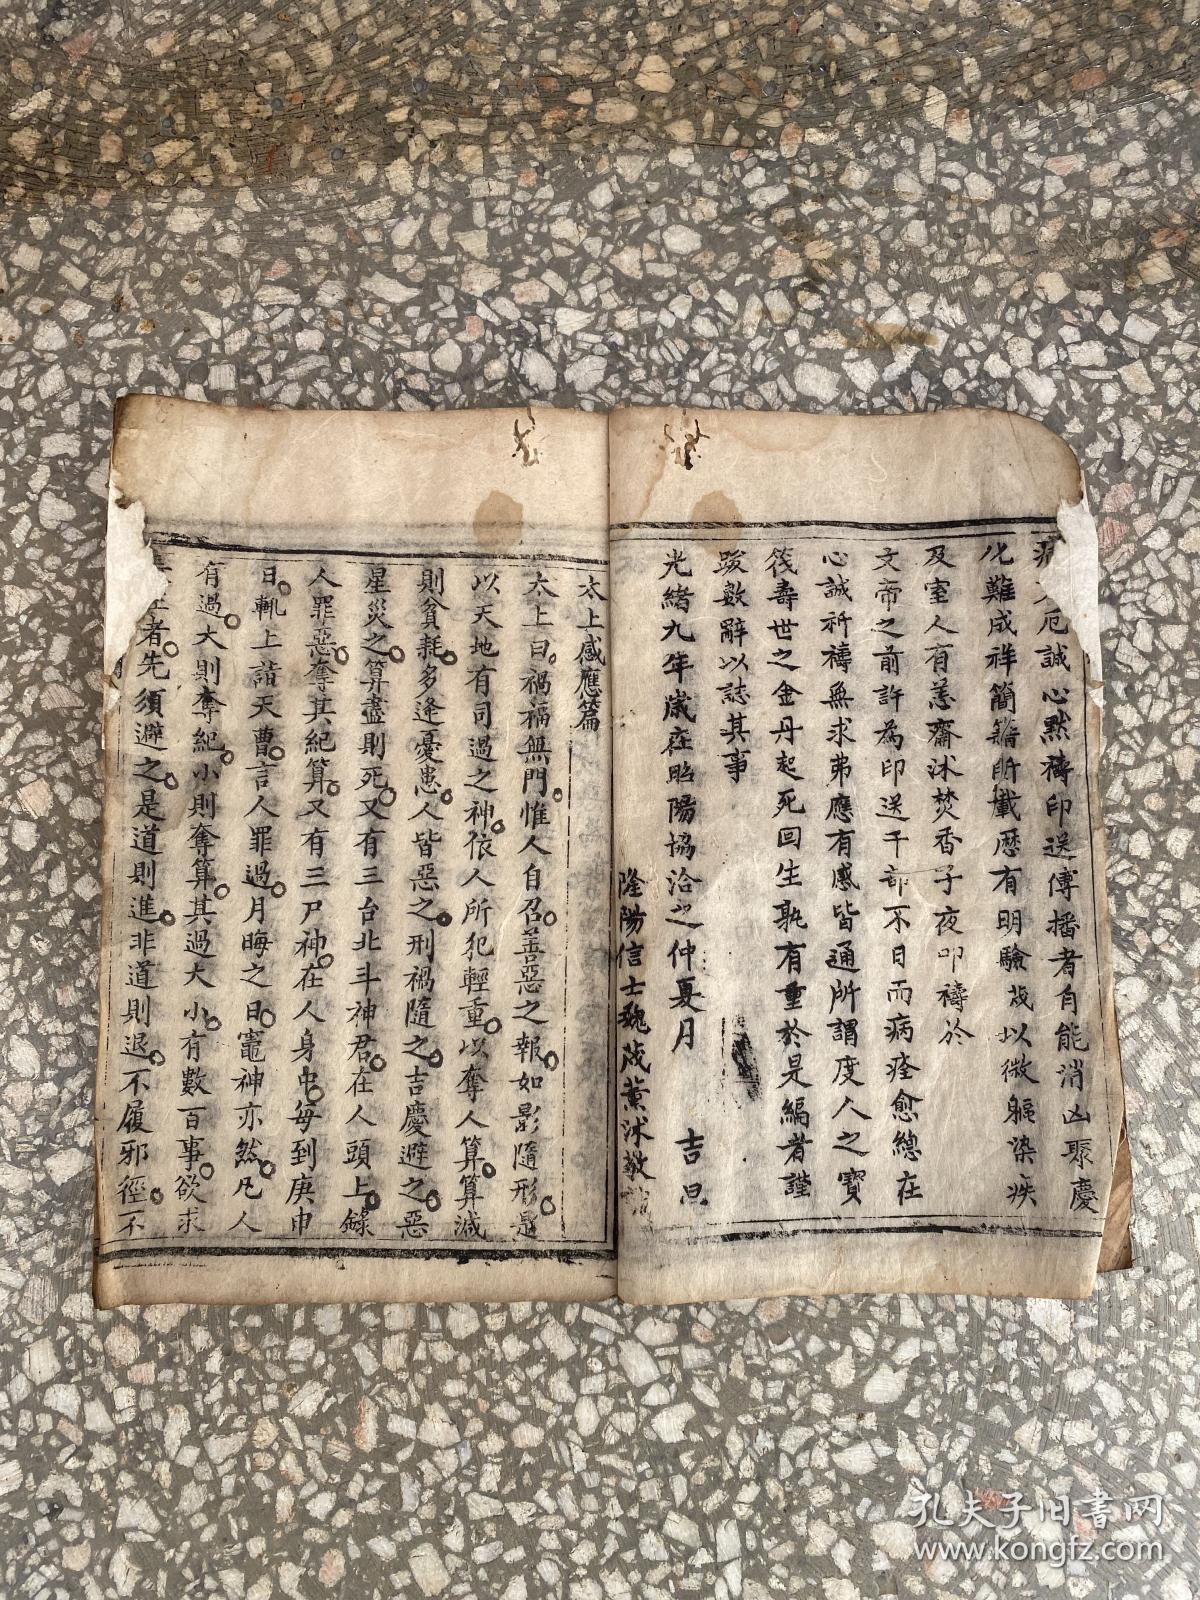 厄誠心默禱印送傳播者自能消凶聚慶
化難成祥簡籍所載歷有明驗茂以微軀染疾
及室人有恙齋沐焚香子夜叩禱於
文帝之前許為印送千部不日而病痊愈總在
心誠祈禱無求弗應有感皆通所謂度人之寶
筏壽世之金丹起死回生孰有重於是編者謹
跋數辭以誌其事
光緒九年歲在昭陽協洽之仲夏月 吉旦
隆陽信士魏茂薰沐敬
太上感應篇
太上曰禍福無門惟人自召善惡之報如影隨形是
以天地有司過之神依人所犯輕重以奪人算算減
則貧耗多逢憂患人皆惡之刑禍隨之吉慶避之惡
星災之算盡則死又有三台北斗神君在人頭上錄
人罪惡奪其紀算又有三尸神在人身中每到庚申
日輒上詣天曹言人罪過月晦之日竈神亦然凡人
有過大則奪紀小則奪算其過大小有數百事欲求
長生者先須避之是道則進非道則退不履邪徑不
孔夫子旧书网
www.kongfz.com